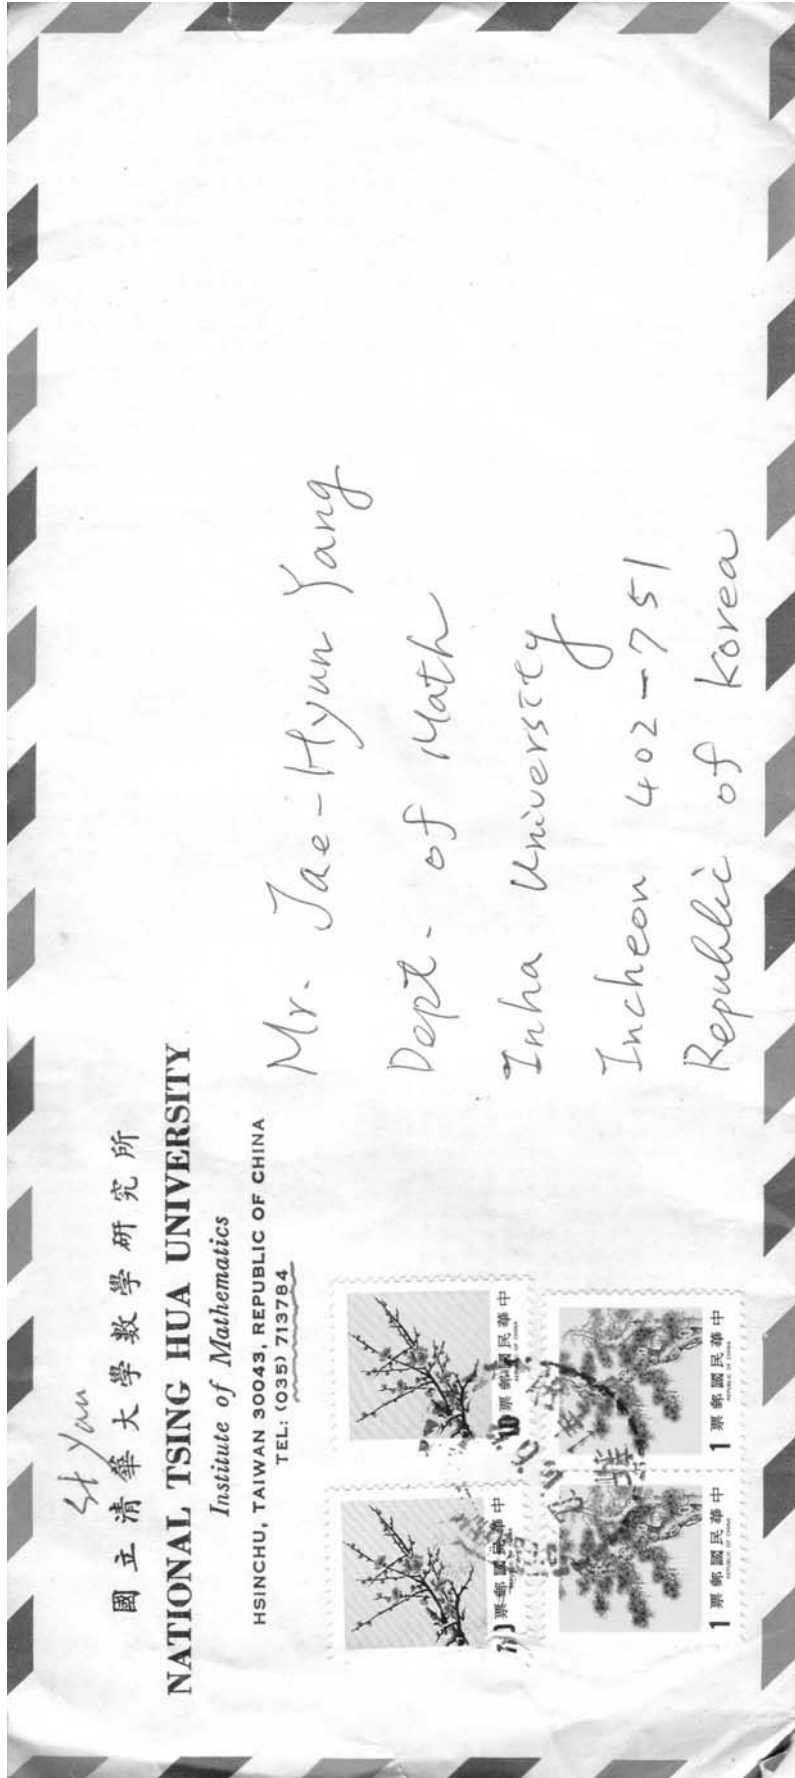 St Yau
國立清華大學數學研究所
NATIONAL TSING HUA UNIVERSITY
Institute of Mathematics
HSINCHU, TAIWAN 30043, REPUBLIC OF CHINA
TEL: (035) 713784
Mr. Jae-Hyun Yang
Dept. of Math
Inha University
Incheon 402-751
Republic of Korea
票郵國民華中
REPUBLIC OF CHINA
10 票郵國民華中
REPUBLIC OF CHINA
1 票郵國民華中
REPUBLIC OF CHINA
1 票郵國民華中
REPUBLIC OF CHINA